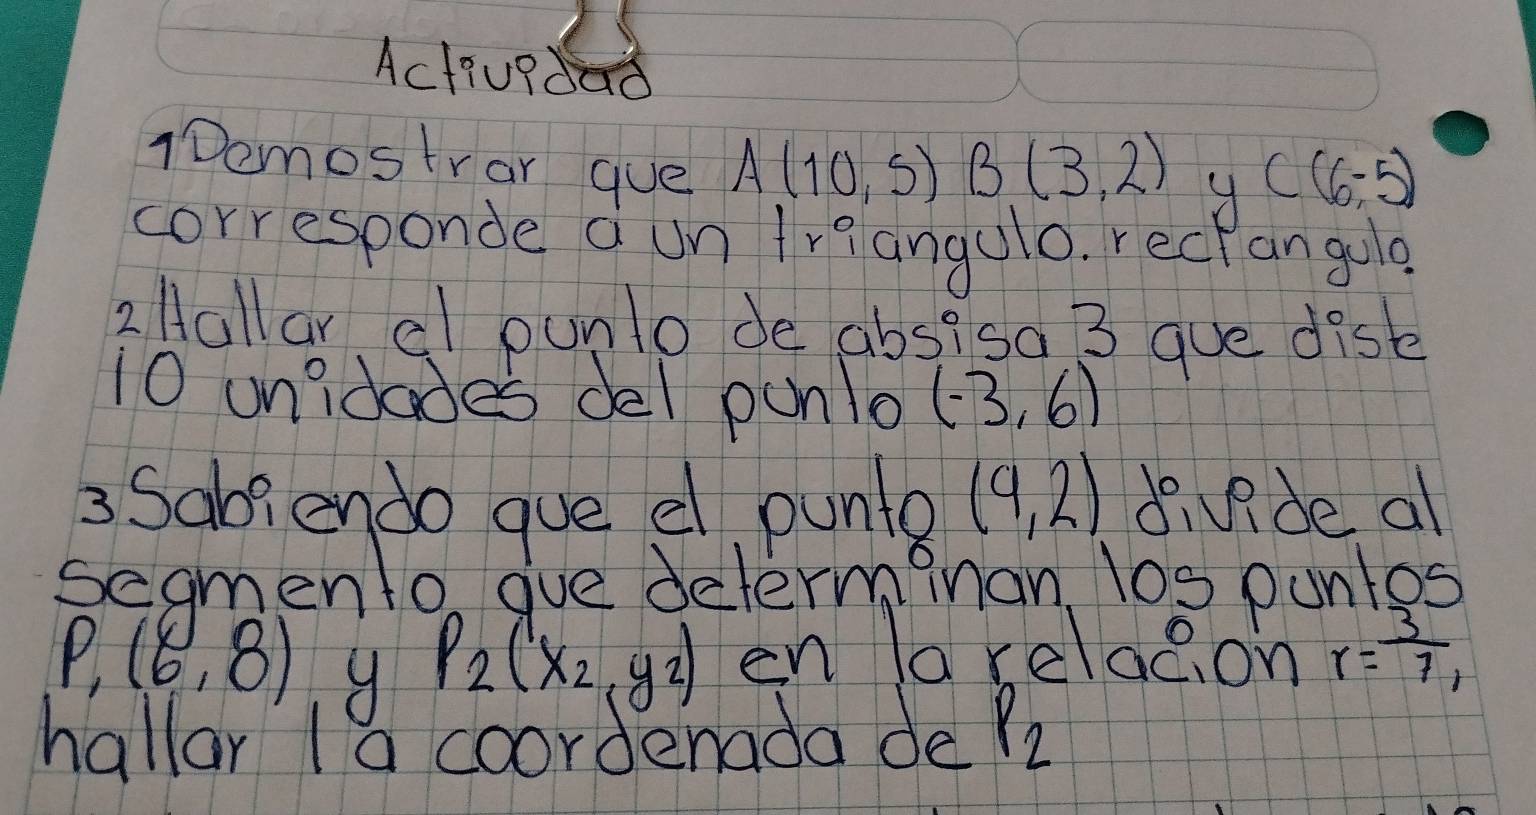 Actividad
1 Demostrar que A(10,5) B(3,2) y C(6,-5)
corresponde a un triangulo. rectangulo.
2 Hallar el punto de absisa 3 que diste
10 unidades del punto (-3,6)
3 Sabiendo que el punto (9,2) divide al
segmento que determinan los puntos
P1(6,8) y P2(x2,y2) en la relación r=3/7,
hallar la coordenada de P2